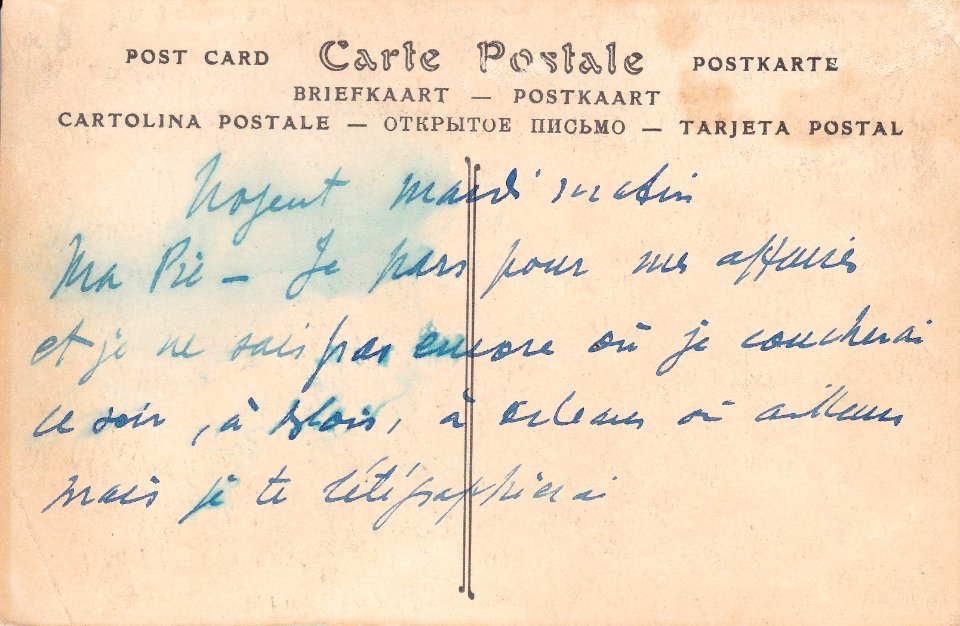 POST CARD Carte Postale POSTKARTE
BRIEFKAART — POSTKAART
CARTOLINA POSTALE — ОТКРЫТОЕ ПИСЬМО — TARJETA POSTAL
Nogent mardi matin
Ma Pie — Je pars pour mes affaires
et je ne sais pas encore où je coucherai
ce soir, à Blois, à Orleans où ailleurs
mais je te télégraphierai